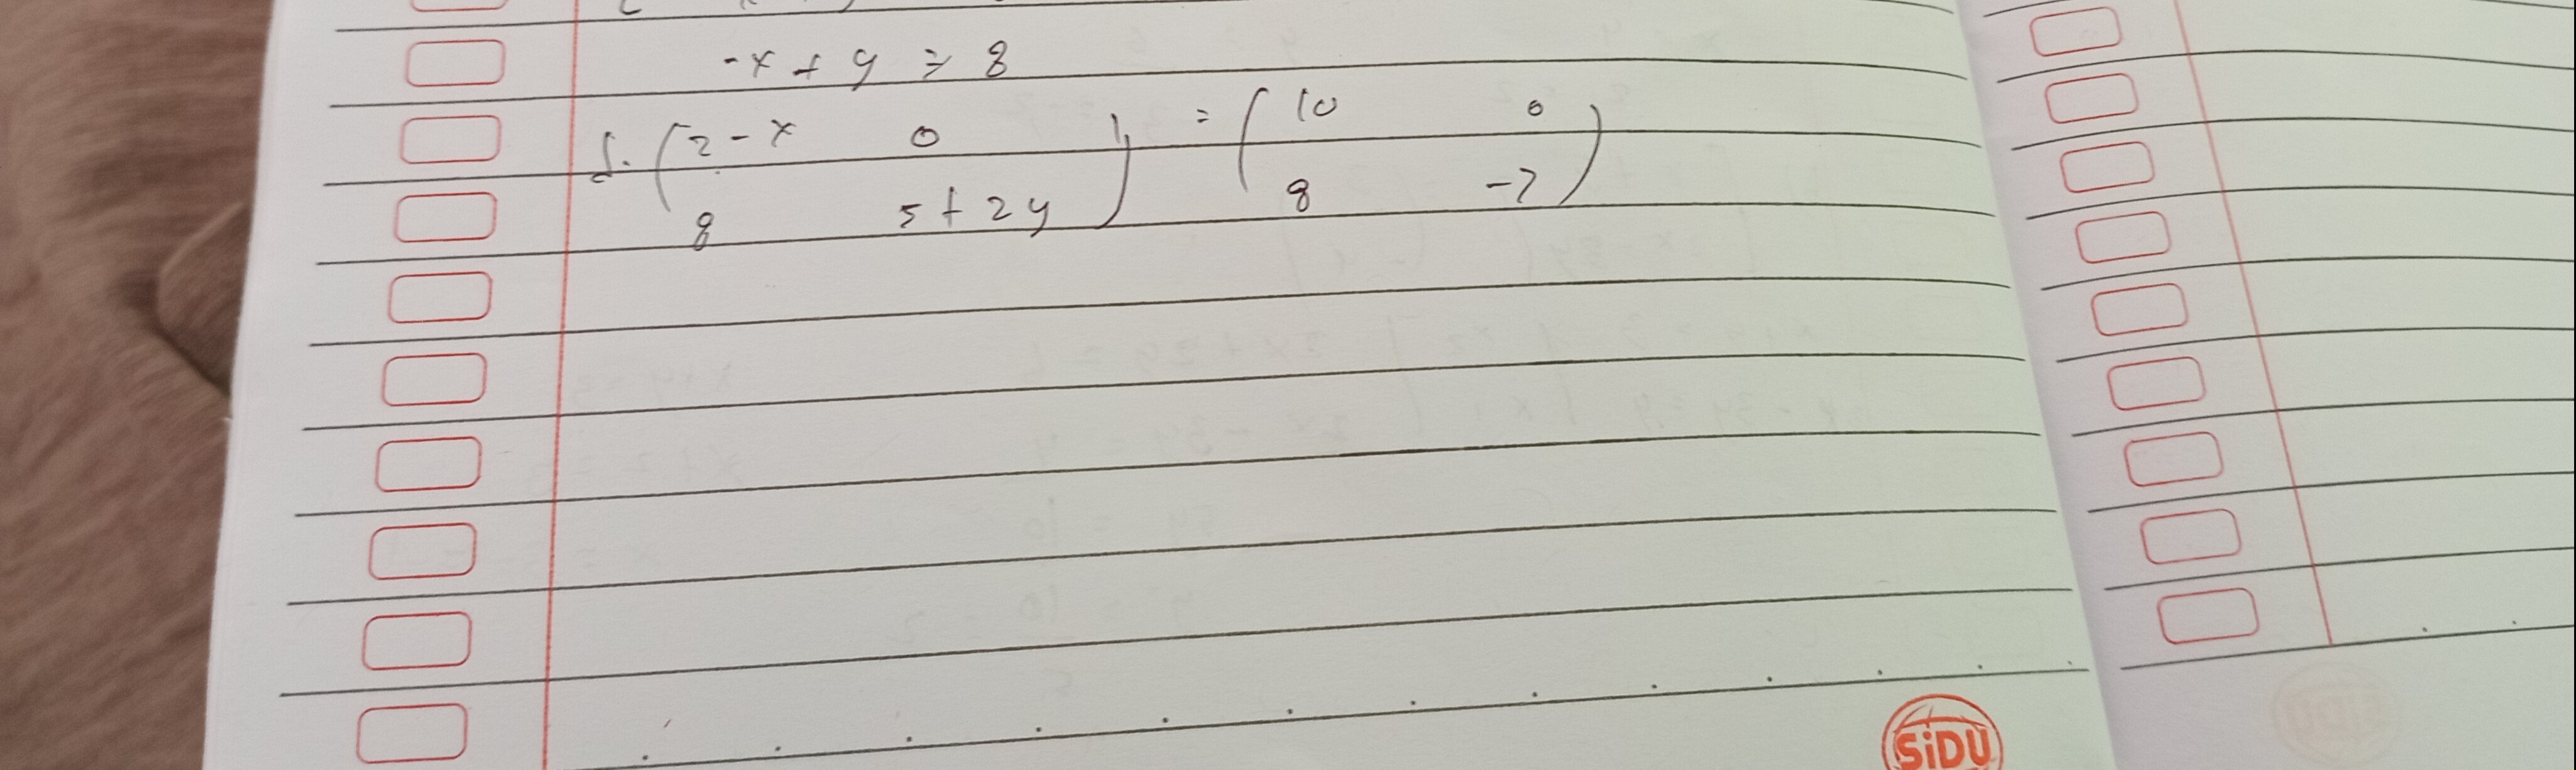 -x + y = 8
5. (2 - x 0
8 5 + 2y) = (10 0
8 -7)
SiDU